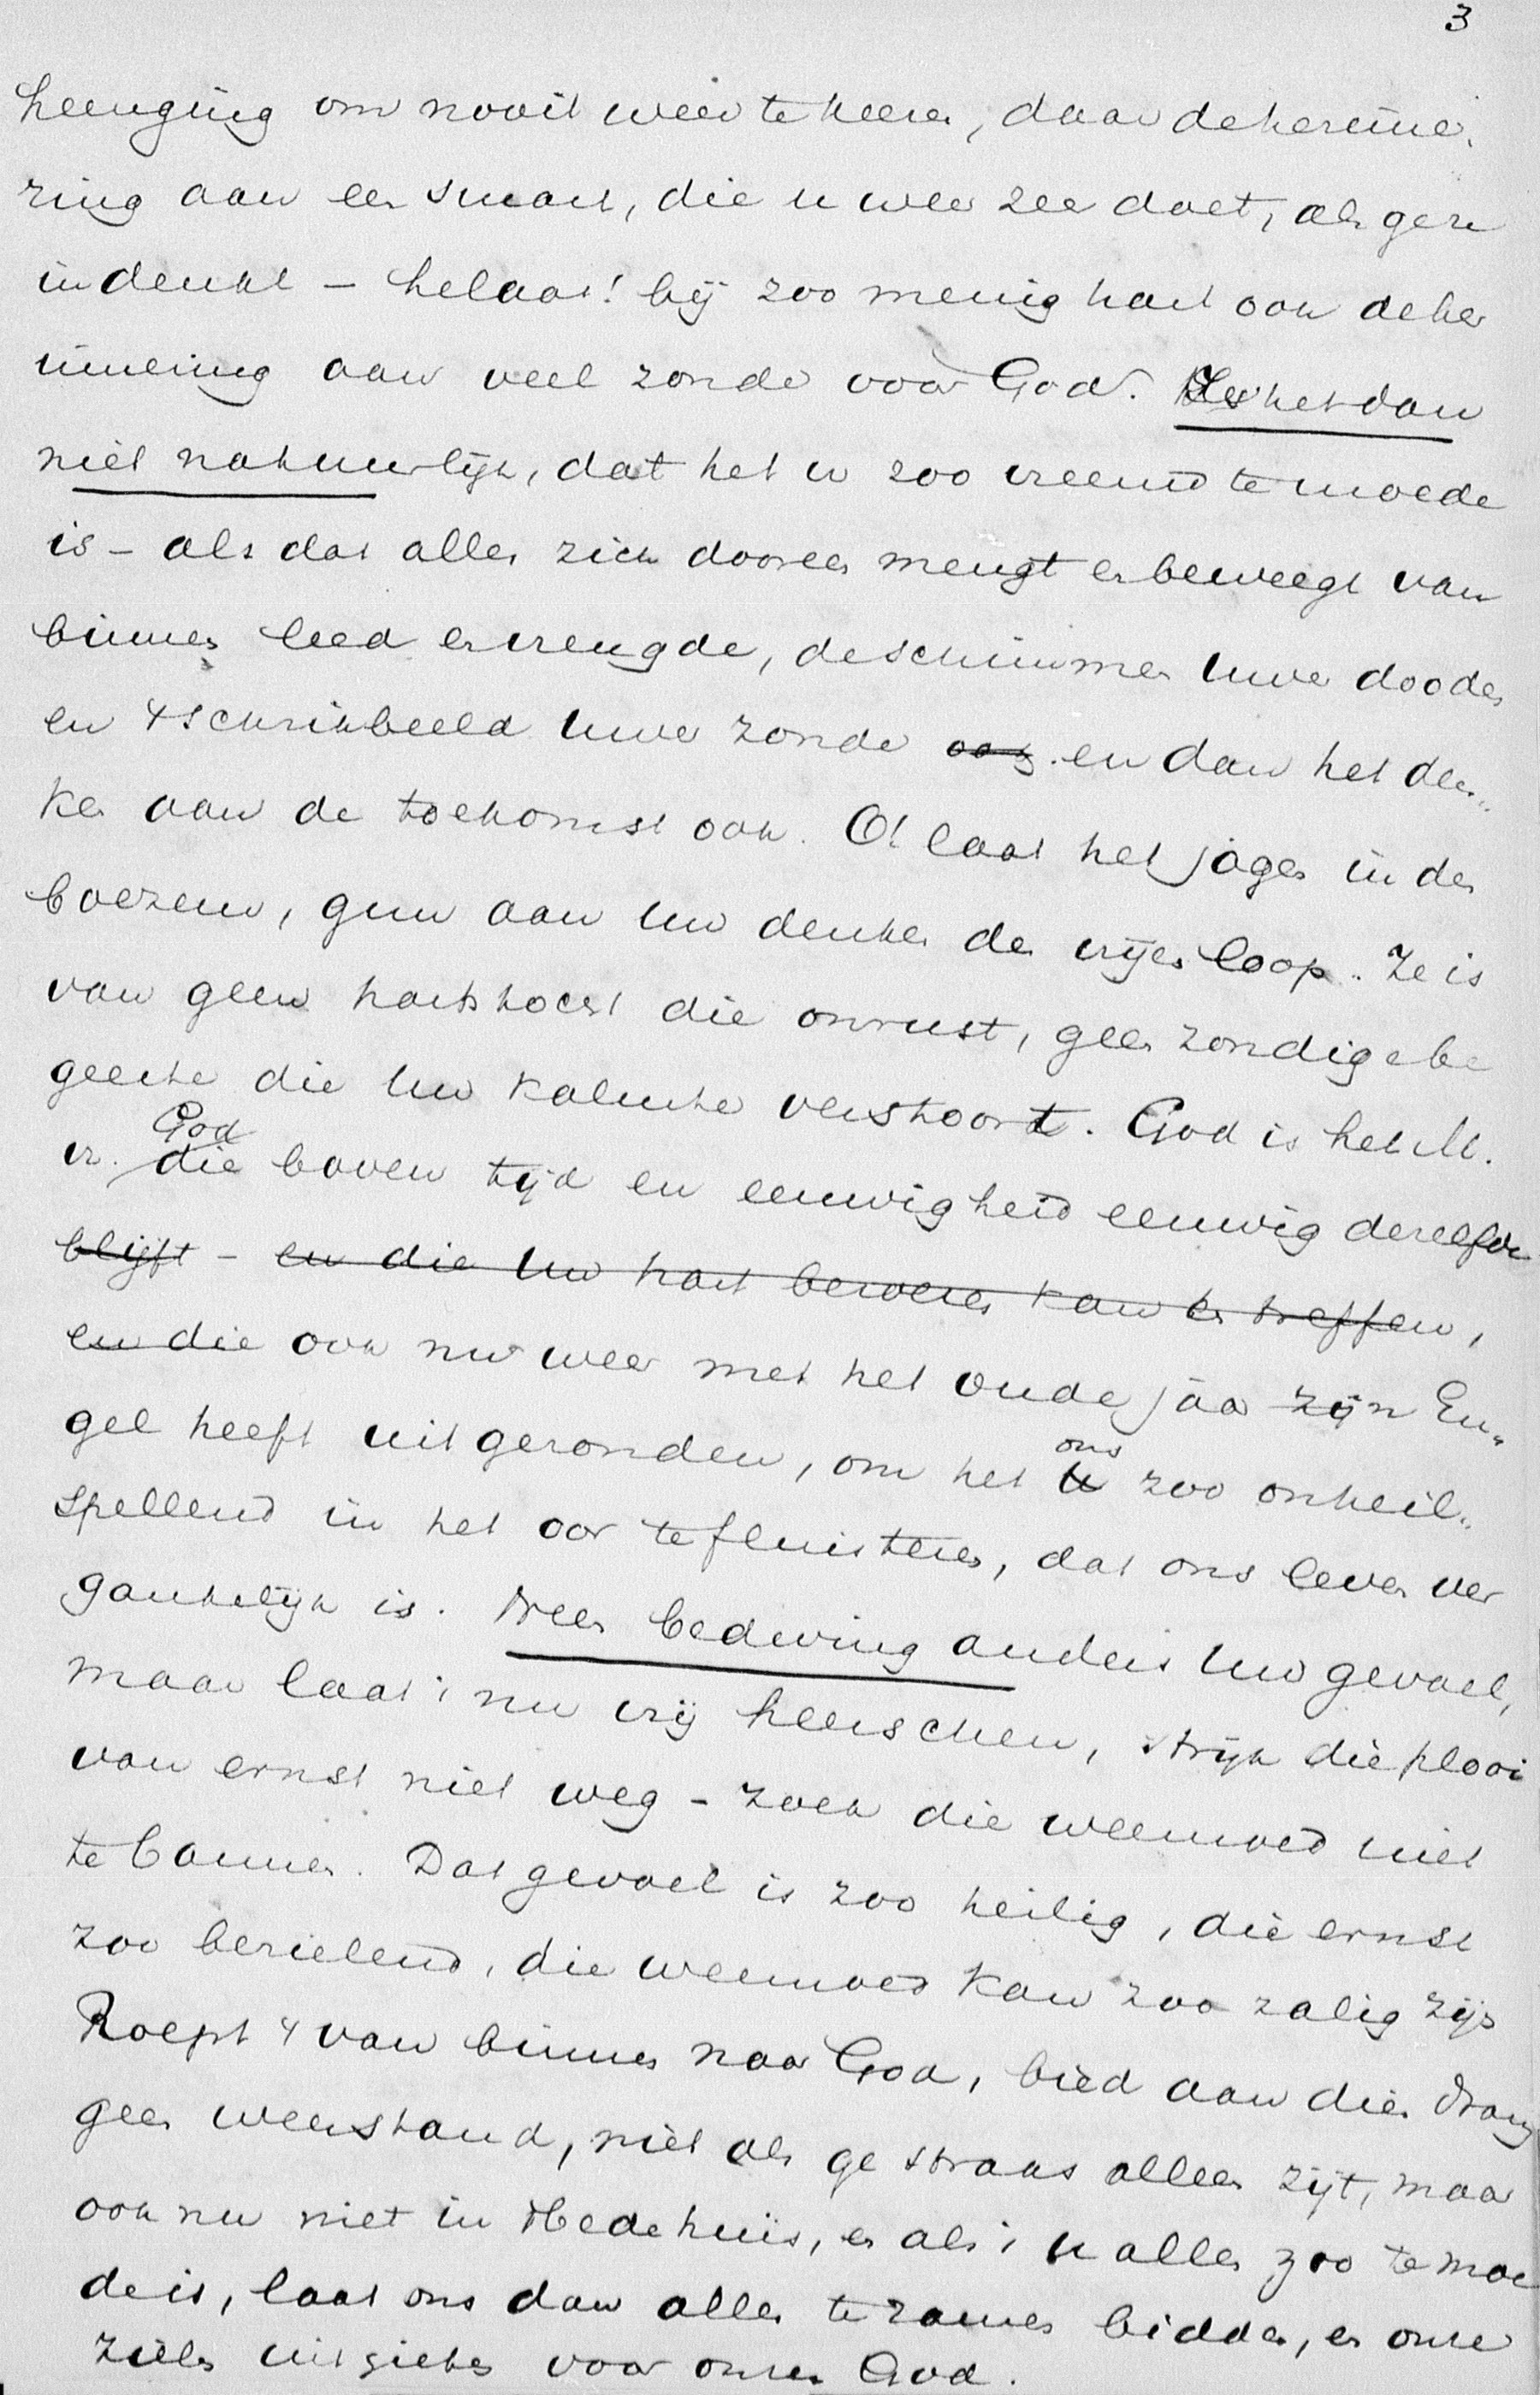 3
heenging om nooit weer te keeren, daar de herinne-
ring aan een smart, die u wee zee doet, als ge er
in denkt - helaas! bij zoo menig hart ook de her
innering aan veel zonde voor God. Is het dan
niet natuurlijk, dat het u zoo vreemd te moede
is - als dat alles zich dooreen mengt en beweegt van
binnen leed en vreugde, de schimmen Uwer dooden
en 't schrikbeeld Uwer zonde ook en dan het den„
ken aan de toekomst ook. O! laat het jagen in den
boezem, gun aan Uw denken den vrijen loop. Ze is
van geen hartstocht die onrust, geen zondige be
geerte die Uw kalmte verstoort. God is het M.
God
vr. die boven tijd en eeuwigheid eeuwig dezelfde
blijft - en die Uw hart beroeren kan en treffen,
en die ook nu weer met het oude jaar zijn En„
ons
gel heeft uitgezonden, om het U zoo onheil„
spellend in het oor te fluisteren, dat ons leven ver
gankelijk is. Neen bedwing anders Uw gevoel,
maar laat 't nu vrij heerschen, strijk die plooi
van ernst niet weg - zoek die weemoed niet
te bannen. Dat gevoel is zoo heilig, die ernst
zoo bezielend, die weemoed kan zoo zalig zijn
Roept 't van binnen naar God, bied aan dien drang
geen weerstand, niet als ge straks alleen zijt, maar
ook nu niet in 't Bedehuis, en als 't u allen zoo te moe
de is, laat ons dan allen te zamen bidden, en onze
zielen uitgieten voor onzen God.